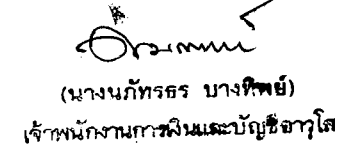 (นางนภัทรธร บางทิพย์)
เจ้าพนักงานการเงินและบัญชีอาวุโส